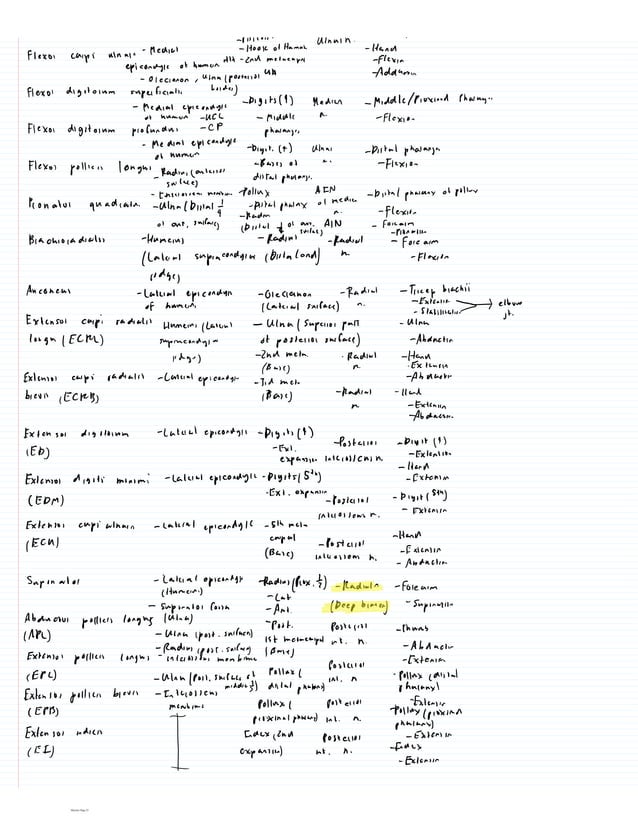 Ulnar n.
Flexor carpi ulnaris - Medial - Hook of Hamate - Hand
epicondyle of humerus - 5th - 2nd metacarpal - Flexion
- Olecranon, Ulna (posterior - Adduction
Flexor digitorum superficialis border)
- Medial epicondyle - Digits (4) Median - Middle/Proximal Phalanges
of humerus - UCL - Middle n. - Flexion
Flexor digitorum profundus - CP phalanges
- Medial epicondyle - Digits (4) Ulnar - Distal phalanges
of humerus - Bases of n. - Flexion
Flexor pollicis longus - Radius (anterior distal phalanges
surface)
- Interosseous membrane - Pollex AIN - Distal phalanx of pollex
Pronator quadratus - Ulna (Distal 1/4 - Distal phalanx of median - Flexion
of ant. surface) - Radius n. - Forearm
(Distal 1/4 of ant. surface) AIN - Pronation
Brachioradialis - Humerus - Radius - Radial - Forearm
(Lateral supracondylar (Distal end) n. - Flexion
ridge)
Anconeus - Lateral epicondyle - Olecranon - Radial - Tricep brachii
of humerus (Lateral surface) n. - Extension elbow
- Stabilization jt.
Extensor carpi radialis Humerus (Lateral - Ulna (Superior part - Ulna
longus (ECRL) supracondylar of posterior surface) - Abduction
ridge) - 2nd meta - Radial - Hand
(Base) n. - Extension
Extensor carpi radialis - Lateral epicondyle - 3rd meta - Abduction
brevis (ECRB) (Base) - Radial - Hand
n. - Extension
- Abduction
Extensor digitorum - Lateral epicondyle - Digits (4) - Posterior - Digit (4)
(ED) - Ext. expansion interosseous n. - Extension
- Hand
Extensor digiti minimi - Lateral epicondyle - Digits (5th) - Extension
(EDM) - Ext. expansion - Posterior - Digit (5th)
interosseous n. - Extension
Extensor carpi ulnaris - Lateral epicondyle - 5th meta - Hand
(ECU) carpal - Posterior - Extension
(Base) interosseous n. - Abduction
Supinator - Lateral epicondyle - Radius (Prox. 1/3) - Radial n. - Forearm
(Humerus) - Lat (Deep branch) - Supination
- Supinator fossa - Ant.
Abductor pollicis longus (Ulna) - Post. Posterior - Thumb
(APL) - Ulna (post. surface) 1st metacarpal int. n. - Abduction
- Radius (post. surface) (Base) - Extension
Extensor pollicis longus - Interosseous membrane Posterior
(EPL) - Ulna (Post. surface of Pollex ( int. n. - Pollex (distal
middle 1/3) distal phalanx) phalanx)
Extensor pollicis brevis - Interosseous Posterior - Extension
(EPB) membrane Pollex ( int. n. - Pollex (proximal
proximal phalanx) phalanx)
Extensor indicis Index (2nd Posterior - Extension
(EI) expansion) int. n. - Index
- Extension